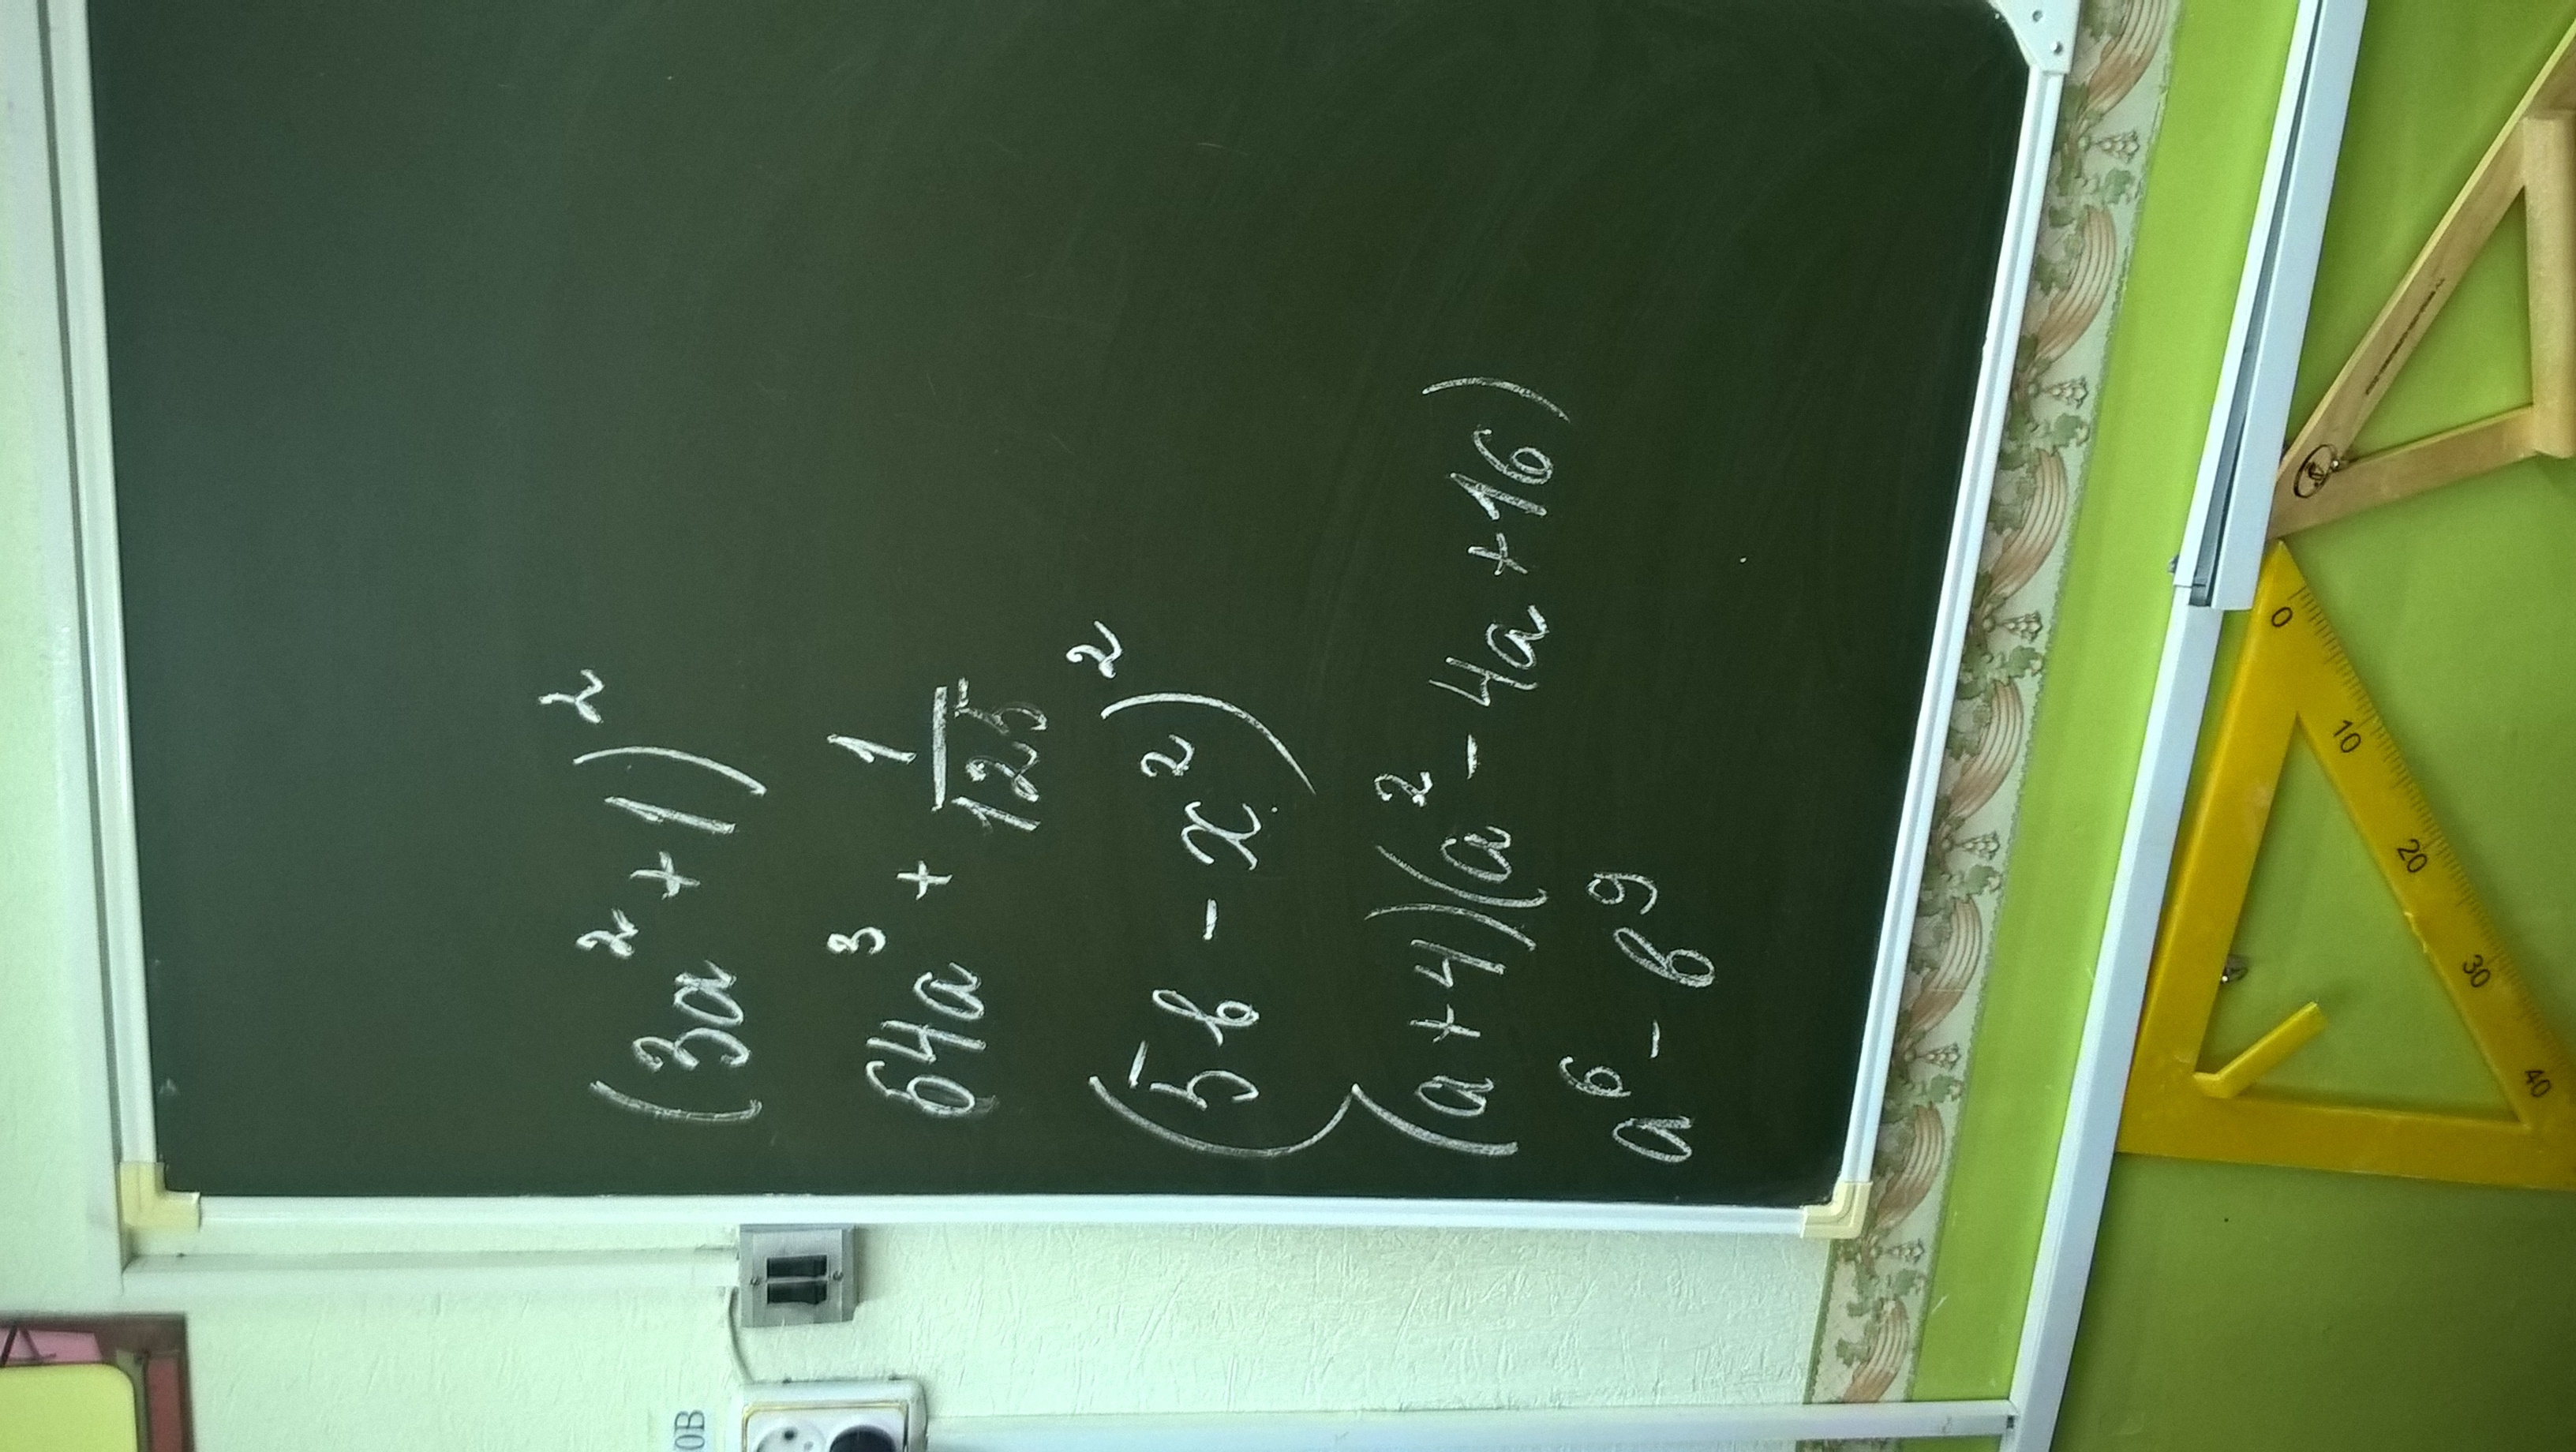 (3a² + 1)²
64a³ + 1/125
(5b - x²)²
(a + 4)(a² - 4a + 16)
a⁶ - b⁹
0 10 20 30 40